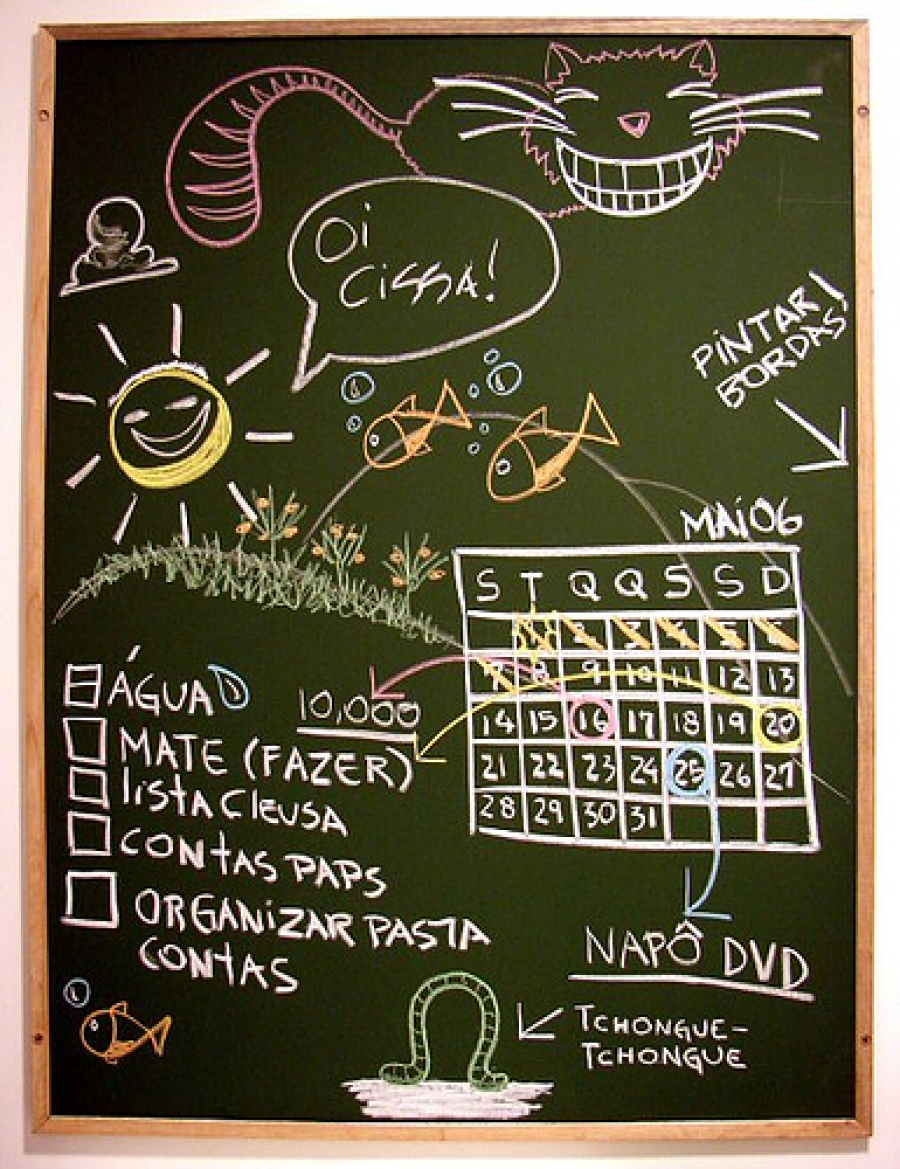 Oi
Cissa!
PINTAR
BORDAS!
MAIO6
S T Q Q S S D
2 3 4 5 6
7 8 9 10 11 12 13
14 15 16 17 18 19 20
21 22 23 24 25 26 27
28 29 30 31
10,000
ÁGUA
MATE (FAZER)
lista Cleusa
CONTAS PAPS
ORGANIZAR PASTA
CONTAS
NAPÔ DVD
TCHONGUE-
TCHONGUE